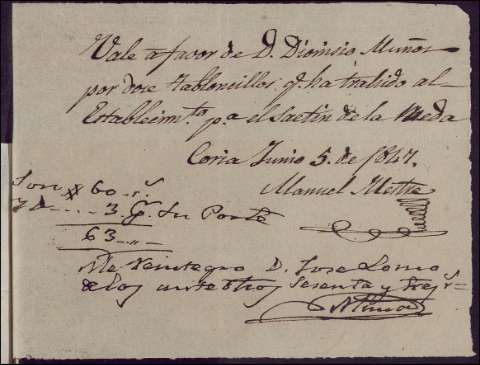 Vale a favor de D. Dionisio Muños
por dose tabloncillos q.e ha trahido al
Establecim.to p.a el Saetin de la Rueda
Coria Junio 5. de 1847.
Manuel Mestre
Son # 60..r.s
y D ... 3. q.e Su Porte
63 ..,,
Me Reintegro D. Jose Lomo
de los antedhos Sesenta y tres r.s =